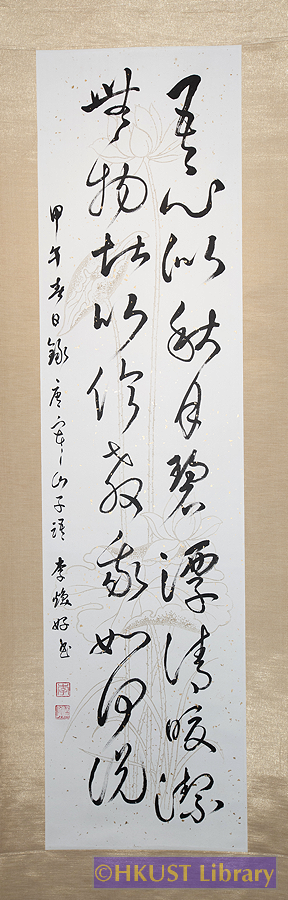 吾心似秋月碧潭清皎潔
無物堪比倫教我如何說
甲午春日錄唐寒山子詩 李煥好書
©HKUST Library